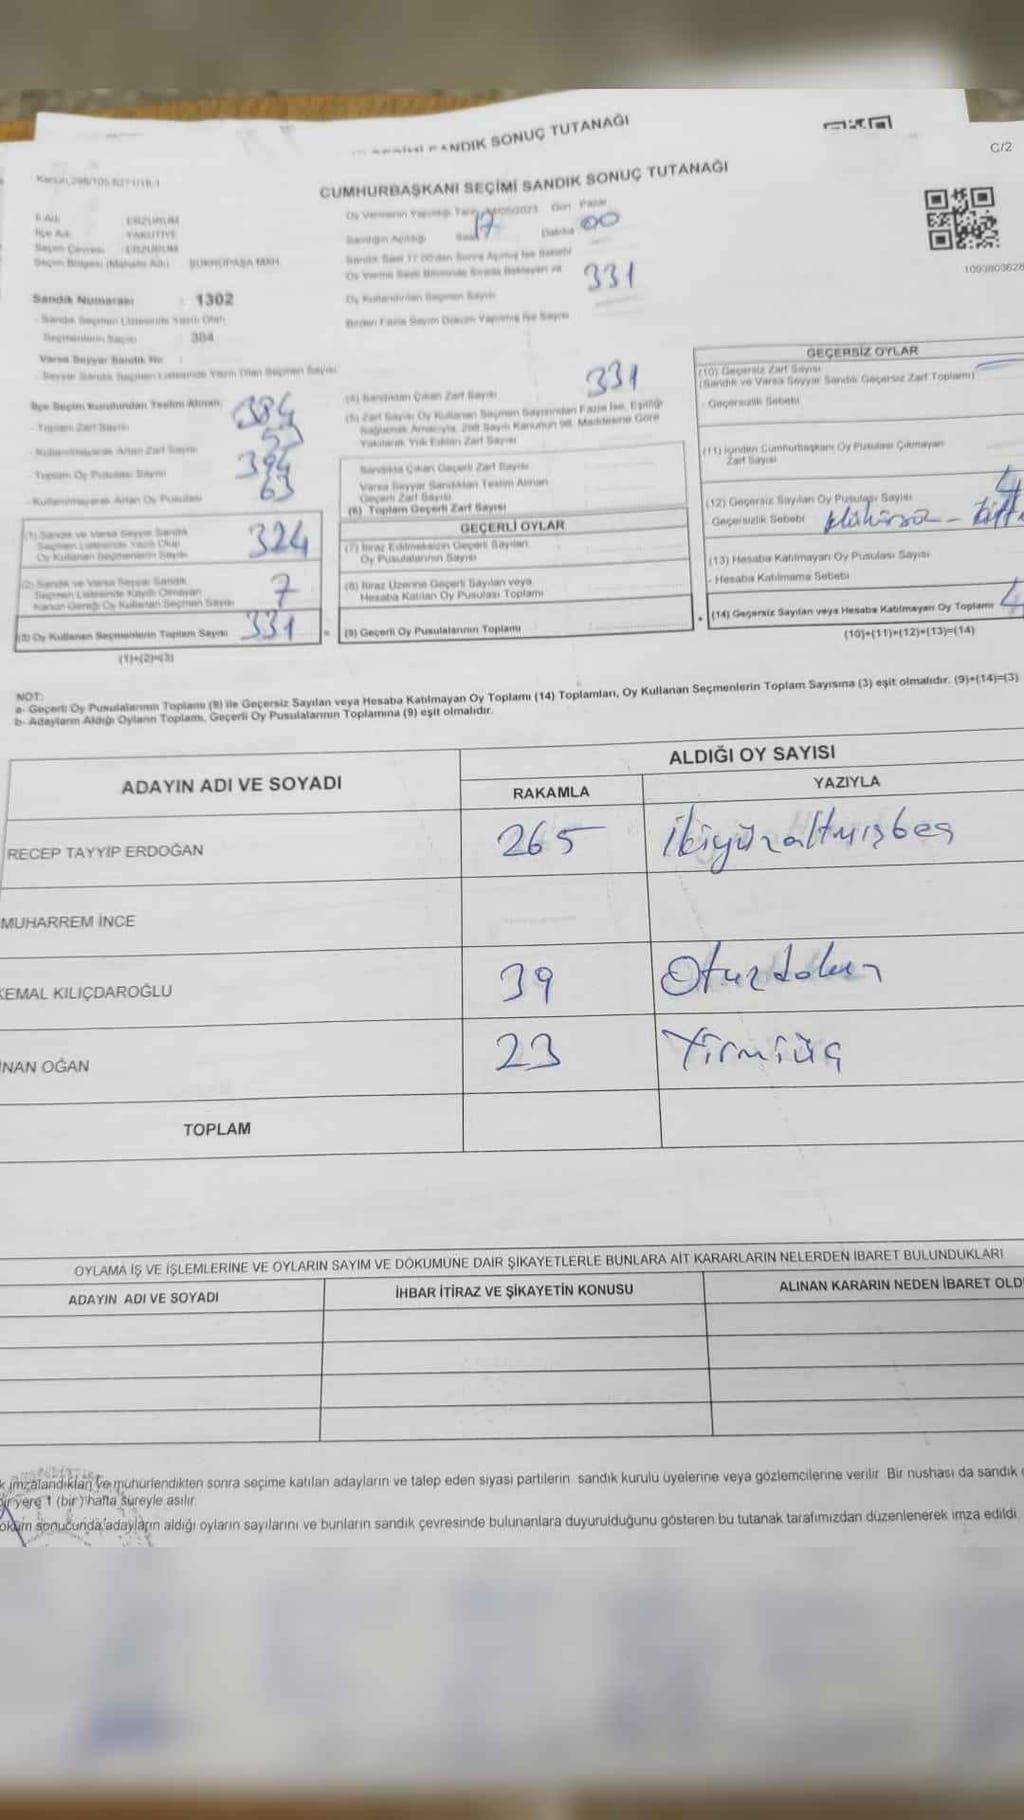 SANDIK SONUÇ TUTANAĞI
C/2
CUMHURBAŞKANI SEÇİMİ SANDIK SONUÇ TUTANAĞI
İl Adı : ERZURUM
İlçe Adı : YAKUTİYE
Seçim Çevresi : ERZURUM
Oy Vermenin Yapıldığı Tarih 14/05/2023 Gün : Pazar
Sandığın Açıldığı Saat 17 Dakika 00
Sandık Saat 17.00'den Sonra Açılmış İse Sebebi
331
Oy Kullandırılan Seçmen Sayısı
Birden Fazla Sayım Döküm Yapılmış İse Sayısı
Sandık Numarası : 1302
- Sandık Seçmen Listesinde Yazılı Olan
Seçmenlerin Sayısı : 384
Varsa Seyyar Sandık No :
- Seyyar Sandık Seçmen Listesinde Yazılı Olan Seçmen Sayısı
İlçe Seçim Kurulundan Teslim Alınan
- Toplam Zarf Sayısı 384
- Kullanılmayarak Artan Zarf Sayısı 53
- Toplam Oy Pusulası Sayısı 394
- Kullanılmayarak Artan Oy Pusulası 63
(1) Sandık ve Varsa Seyyar Sandık
Seçmen Listesinde Yazılı Olup
Oy Kullanan Seçmenlerin Sayısı 324
(2) Sandık ve Varsa Seyyar Sandık
Seçmen Listesinde Kayıtlı Olmayan
Kanun Gereği Oy Kullanan Seçmen Sayısı 7
(3) Oy Kullanan Seçmenlerin Toplam Sayısı 331
(1)+(2)=(3)
(4) Sandıktan Çıkan Zarf Sayısı 331
(5) Zarf Sayısı Oy Kullanan Seçmen Sayısından Fazla İse, Eşitliği
Sağlamak Amacıyla, 298 Sayılı Kanunun 98. Maddesine Göre
Yakılarak Yok Edilen Zarf Sayısı
Sandıkta Çıkan Geçerli Zarf Sayısı
Varsa Seyyar Sandıktan Teslim Alınan
Geçerli Zarf Sayısı
(6) Toplam Geçerli Zarf Sayısı
GEÇERLİ OYLAR
(7) İtiraz Edilmeksizin Geçerli Sayılan
Oy Pusulalarının Sayısı
(8) İtiraz Üzerine Geçerli Sayılan veya
Hesaba Katılan Oy Pusulası Toplamı
= (9) Geçerli Oy Pusulalarının Toplamı
GEÇERSİZ OYLAR
(10) Geçersiz Zarf Sayısı
(Sandık ve Varsa Seyyar Sandık Geçersiz Zarf Toplamı)
- Geçersizlik Sebebi
(11) İçinden Cumhurbaşkanı Oy Pusulası Çıkmayan
Zarf Sayısı
(12) Geçersiz Sayılan Oy Pusulası Sayısı 4
Geçersizlik Sebebi
(13) Hesaba Katılmayan Oy Pusulası Sayısı
- Hesaba Katılmama Sebebi
+ (14) Geçersiz Sayılan veya Hesaba Katılmayan Oy Toplamı 4
(10)+(11)+(12)+(13)=(14)
NOT:
a- Geçerli Oy Pusulalarının Toplamı (9) ile Geçersiz Sayılan veya Hesaba Katılmayan Oy Toplamı (14) Toplamları, Oy Kullanan Seçmenlerin Toplam Sayısına (3) eşit olmalıdır. (9)+(14)=(3)
b- Adayların Aldığı Oyların Toplamı, Geçerli Oy Pusulalarının Toplamına (9) eşit olmalıdır.
ADAYIN ADI VE SOYADI
ALDIĞI OY SAYISI
RAKAMLA YAZIYLA
RECEP TAYYİP ERDOĞAN 265 İkiyüzaltmışbeş
MUHARREM İNCE
KEMAL KILIÇDAROĞLU 39 Otuzdokuz
İNAN OĞAN 23 Yirmiüç
TOPLAM
OYLAMA İŞ VE İŞLEMLERİNE VE OYLARIN SAYIM VE DÖKÜMÜNE DAİR ŞİKAYETLERLE BUNLARA AİT KARARLARIN NELERDEN İBARET BULUNDUKLARI
ADAYIN ADI VE SOYADI İHBAR İTİRAZ VE ŞİKAYETİN KONUSU ALINAN KARARIN NEDEN İBARET OLD
k imzalandıktan ve mühürlendikten sonra seçime katılan adayların ve talep eden siyasi partilerin sandık kurulu üyelerine veya gözlemcilerine verilir. Bir nüshası da sandık
bir yere 1 (bir) hafta süreyle asılır.
döküm sonucunda adayların aldığı oyların sayılarını ve bunların sandık çevresinde bulunanlara duyurulduğunu gösteren bu tutanak tarafımızdan düzenlenerek imza edildi.